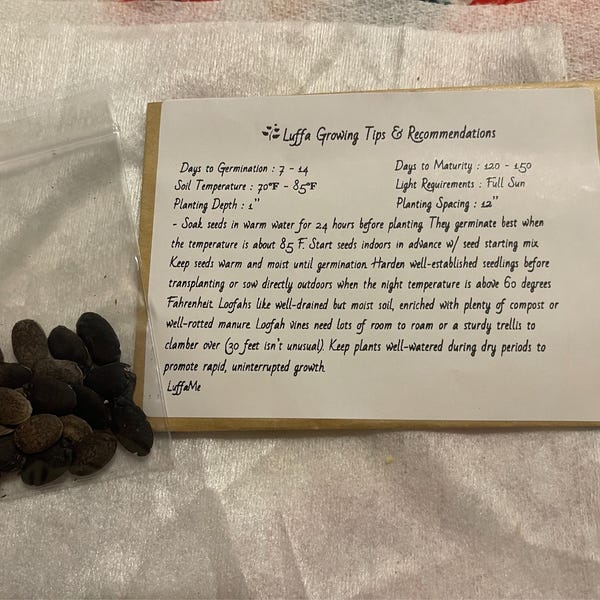 Luffa Growing Tips & Recommendations
Days to Germination : 7 - 14
Soil Temperature : 70°F - 85°F
Planting Depth : 1"
Days to Maturity : 120 - 150
Light Requirements : Full Sun
Planting Spacing : 12"
- Soak seeds in warm water for 24 hours before planting. They germinate best when
the temperature is about 85 F. Start seeds indoors in advance w/ seed starting mix.
Keep seeds warm and moist until germination. Harden well-established seedlings before
transplanting or sow directly outdoors when the night temperature is above 60 degrees
Fahrenheit. Loofahs like well-drained but moist soil, enriched with plenty of compost or
well-rotted manure. Loofah vines need lots of room to roam or a sturdy trellis to
clamber over (30 feet isn't unusual). Keep plants well-watered during dry periods to
promote rapid, uninterrupted growth.
LuffaMe